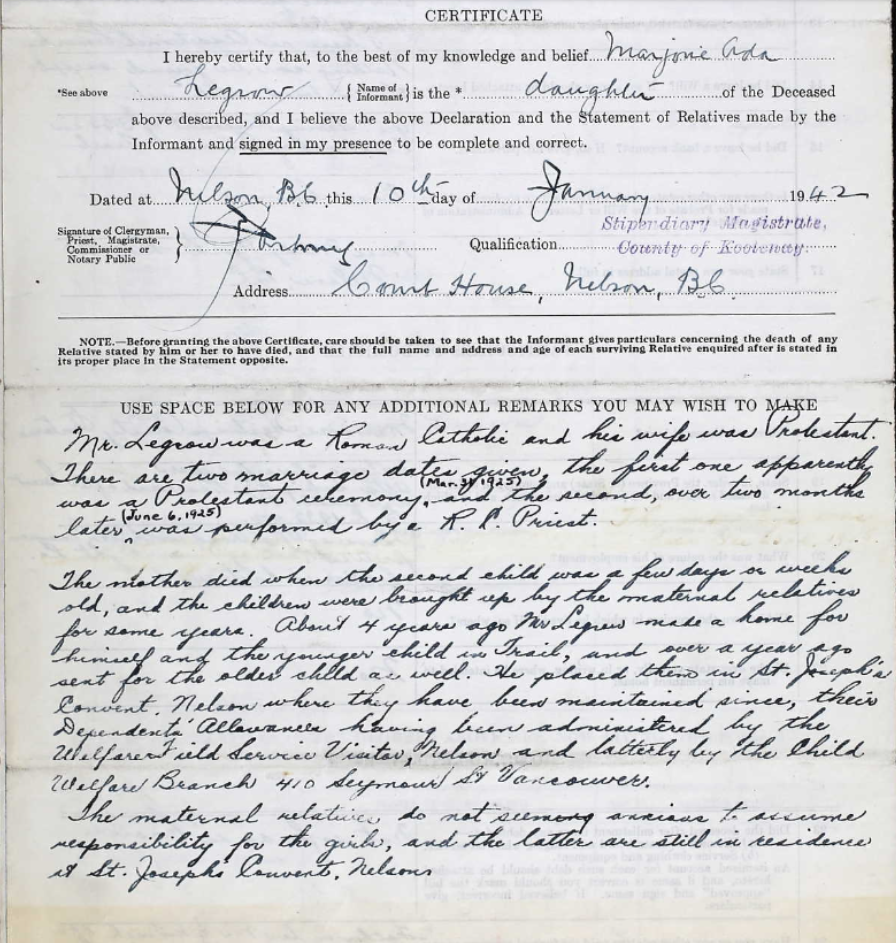 CERTIFICATE
I hereby certify that, to the best of my knowledge and belief Marjorie Ada
*See above Legrow { Name of Informant } is the * daughter of the Deceased
above described, and I believe the above Declaration and the Statement of Relatives made by the
Informant and signed in my presence to be complete and correct.
Dated at Nelson BC this 10th day of January 1942
Signature of Clergyman,
Priest, Magistrate,
Commissioner or
Notary Public
Qualification Stipendiary Magistrate,
County of Kootenay.
Address Court House, Nelson, BC
NOTE.—Before granting the above Certificate, care should be taken to see that the Informant gives particulars concerning the death of any
Relative stated by him or her to have died, and that the full name and address and age of each surviving Relative enquired after is stated in
its proper place in the Statement opposite.
USE SPACE BELOW FOR ANY ADDITIONAL REMARKS YOU MAY WISH TO MAKE
Mr. Legrow was a Roman Catholic and his wife was Protestant.
There are two marriage dates given, the first one apparently
was a Protestant ceremony (Mar. 31, 1925), and the second, over two months
later (June 6, 1925) was performed by a R. C. Priest.
The mother died when the second child was a few days or weeks
old, and the children were brought up by the maternal relatives
for some years. About 4 years ago Mr Legrow made a home for
himself and the younger child in Trail, and over a year ago
sent for the older child as well. He placed them in St. Joseph's
Convent, Nelson where they have been maintained since, their
Dependents' Allowances having been administered by the
Welfare Field Service Visitor, Nelson and latterly by the Child
Welfare Branch 410 Seymour St Vancouver.
The maternal relatives do not seem anxious to assume
responsibility for the girls, and the latter are still in residence
at St. Joseph's Convent, Nelson